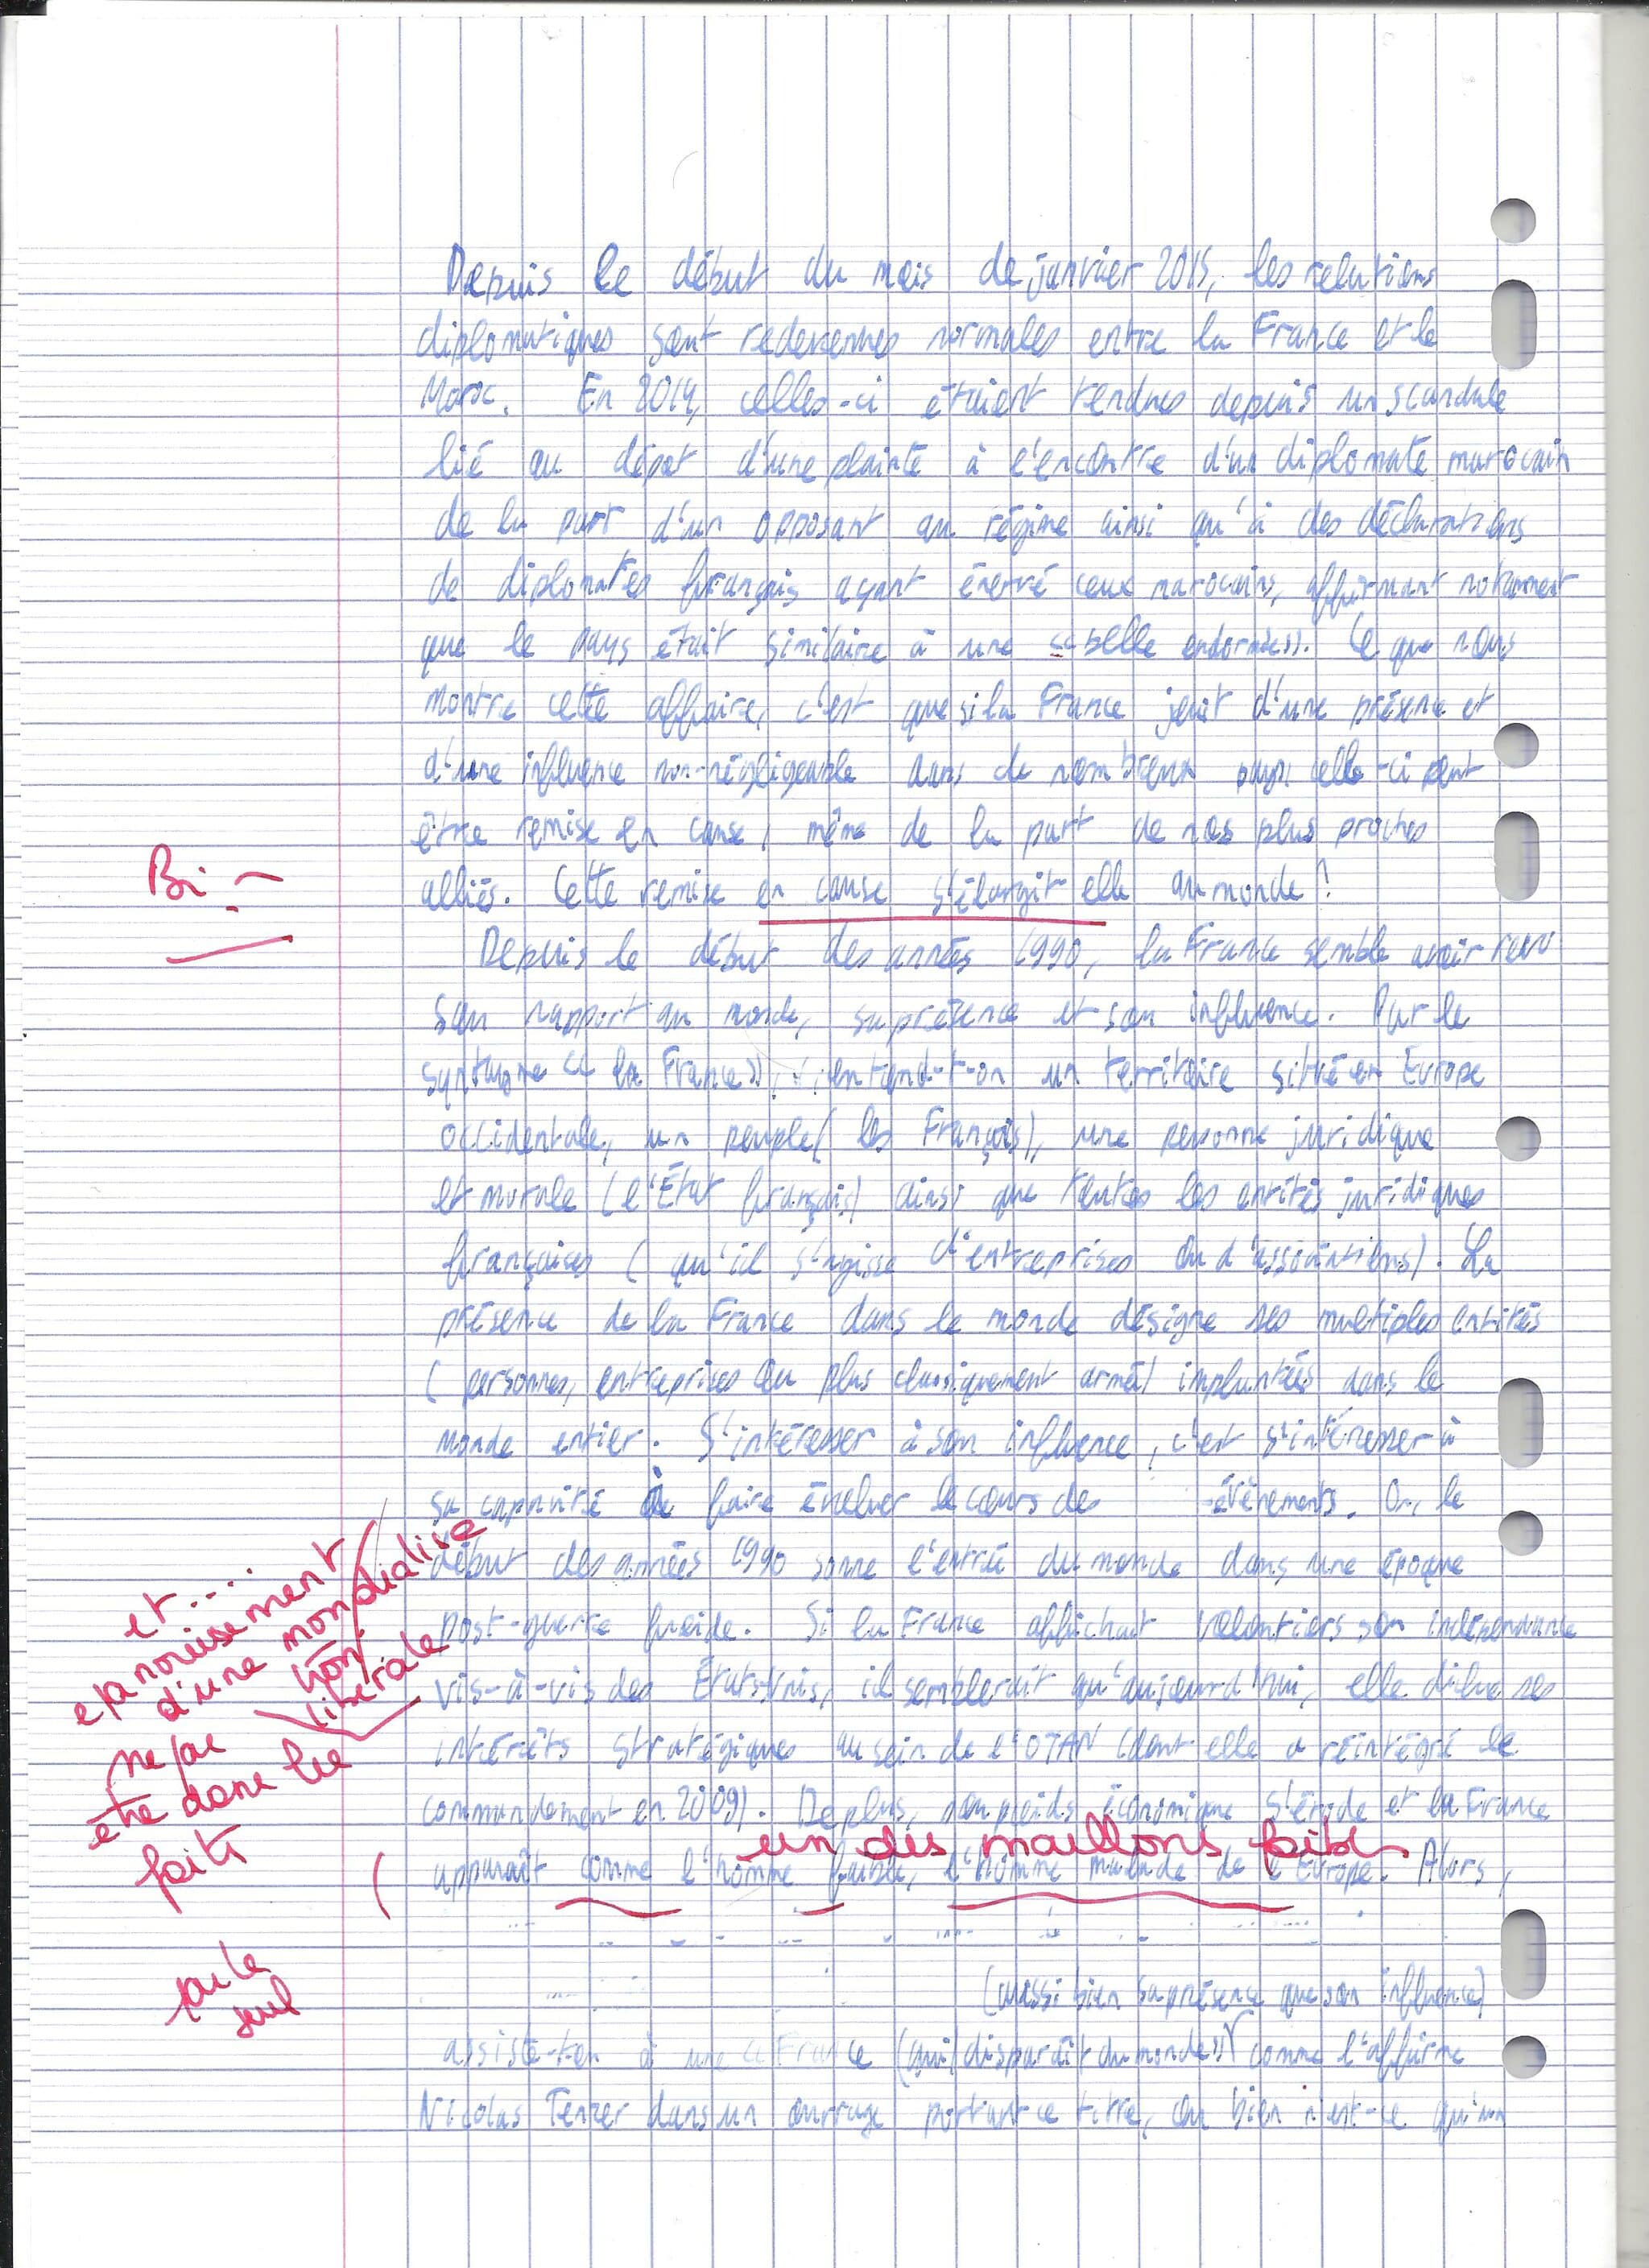 Depuis le début du mois de janvier 2015, les relations
diplomatiques sont redevenues normales entre la France et le
Maroc. En 2014, celles-ci étaient tendues depuis un scandale
lié au dépot d'une plainte à l'encontre d'un diplomate marocain
de la part d'un opposant au régime ainsi qu'à des déclarations
de diplomates français ayant énervé ceux marocains, affirmant notamment
que le pays était similaire à une « belle endormie ». Ce que nous
montre cette affaire, c'est que si la France jouit d'une présence et
d'une influence non-négligeable dans de nombreux pays, celle-ci peut
être remise en cause, même de la part de nos plus proches
alliés. Cette remise en cause s'élargit-elle au monde ?
Bi
Depuis le début des années 1990, la France semble avoir revu
son rapport au monde, sa présence et son influence. Par le
syntagme « la France », entend-t-on un territoire situé en Europe
occidentale, un peuple (les Français), une personne juridique
et morale (l'État français) ainsi que toutes les entités juridiques
françaises (qu'il s'agisse d'entreprises ou d'associations). La
présence de la France dans le monde désigne ses multiples entités
(personnes, entreprises ou plus classiquement armée) implantées dans le
monde entier. S'intéresser à son influence, c'est s'intéresser à
sa capacité à faire évoluer le cours des évènements. Or, le
début des années 1990 sonne l'entrée du monde dans une époque
post-guerre froide. Si la France affichait volontiers son indépendance
vis-à-vis des États-Unis, il semblerait qu'aujourd'hui, elle dilue ses
intérêts stratégiques au sein de l'OTAN (dont elle a réintégré le
commandement en 2009). De plus, son poids économique s'érode et la France
apparaît comme l'homme faible, l'homme malade de l'Europe. Alors,
et ...
épanouissement
d'une mondialisa
tion
libérale
ne pas
être dans les
faits
un des maillons faibles
pas le
seul
(aussi bien sa présence que son influence)
assiste-t-on à une « France (qui) disparaît du monde » comme l'affirme
Nicolas Tenzer dans un ouvrage portant ce titre, ou bien n'est-ce qu'un